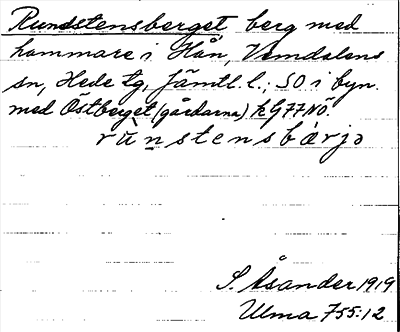 Rundstensberget berg med
hammare i Hån, Vemdalens
sn, Hede tg, Jämtl. l.; SO i byn.
med Östberget (gårdarna) k G77NÖ.
rùnstensbärjə
S. Åsander 1919
Ulma 755:12